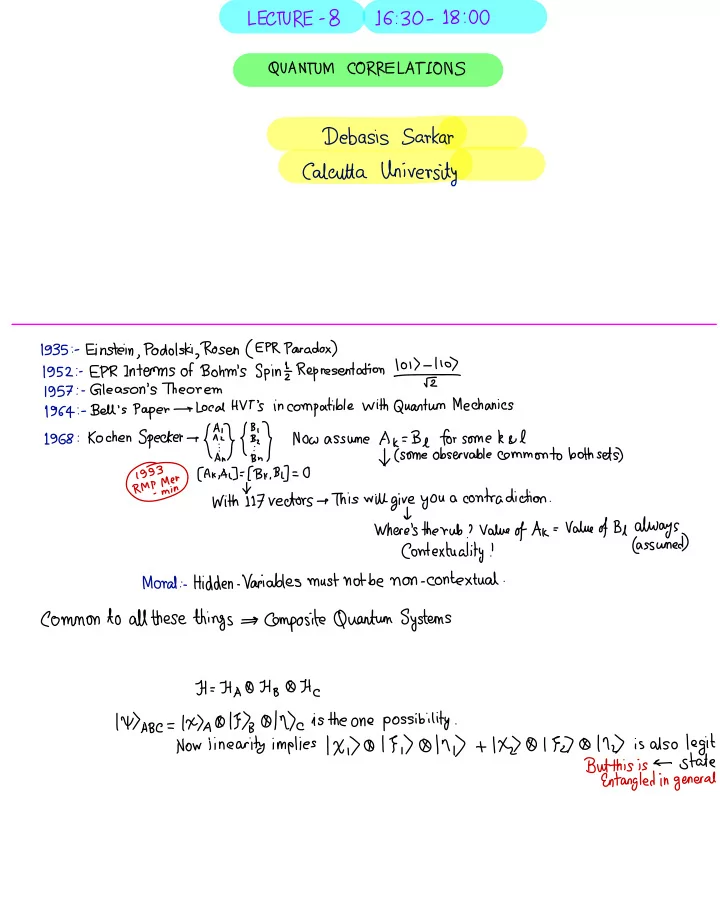 LECTURE - 8 16:30 - 18:00
QUANTUM CORRELATIONS
Debasis Sarkar
Calcutta University
1935:- Einstein, Podolski, Rosen (EPR Paradox)
1952:- EPR In terms of Bohm's Spin ½ Representation (|01⟩ − |10⟩)/√2
1957:- Gleason's Theorem
1964:- Bell's Paper → Local HVT's incompatible with Quantum Mechanics
1968: Kochen Specker → {A₁ A₂ ⋮ Aₙ} {B₁ B₂ ⋮ Bₙ} Now assume Aₖ = Bₗ for some k & l
↓ (some observable common to both sets)
1993 RMP Mermin
[Aₖ,Aₗ]=[Bₖ,Bₗ]=0
↓
With 117 vectors → This will give you a contradiction.
↓
Where's the rub? Value of Aₖ = Value of Bₗ always (assumed)
Contextuality!
Moral:- Hidden-Variables must not be non-contextual.
Common to all these things ⇒ Composite Quantum Systems
ℋ = ℋ_A ⊗ ℋ_B ⊗ ℋ_C
|Ψ⟩_ABC = |χ⟩_A ⊗ |ξ⟩_B ⊗ |η⟩_C is the one possibility.
Now linearity implies |χ₁⟩ ⊗ |ξ₁⟩ ⊗ |η₁⟩ + |χ₂⟩ ⊗ |ξ₂⟩ ⊗ |η₂⟩ is also legit
But this is ← state
Entangled in general